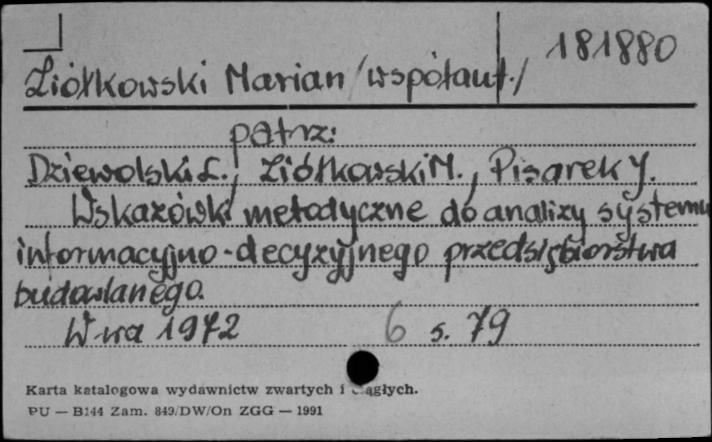 181880
Ziółkowski Marian /współaut./
patrz:
Dziewolski L., Ziółkowski M., Pisarek Y.
Wskazówki metodyczne do analizy systemu
informacyjno-decyzyjnego przedsiębiorstwa
budowlanego.
W-wa 1972 6 s. 79
Karta katalogowa wydawnictw zwartych i ciągłych.
PU — B144 Zam. 849/DW/On ZGG — 1991